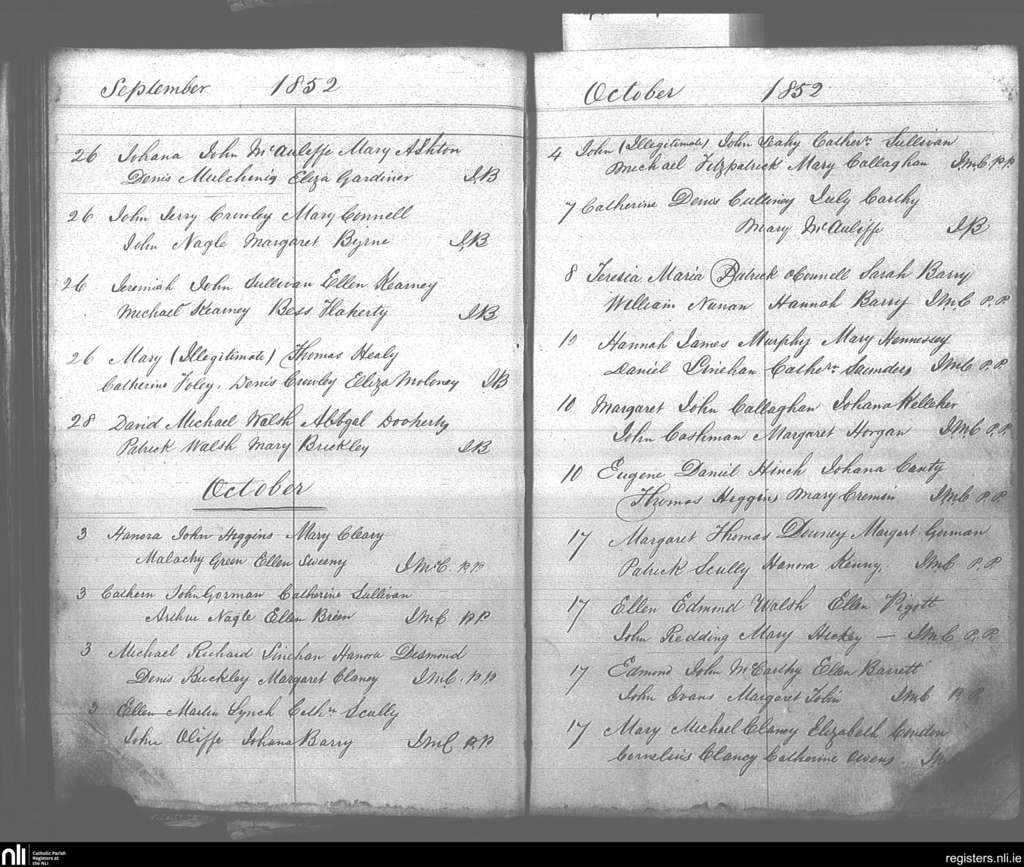 September 1852
26 Johana John McAuliffe Mary Ashton
Denis Mulchinig Eliza Gardiner J,B
26 John Jerry Crowley Mary Connell
John Nagle Margaret Byrne J,B
26 Jeremiah John Sullivan Ellen Kearney
Michael Kearney Bess Flaherty J,B
26 Mary (Illegitimate) Thomas Healy
Catherine Foley. Denis Crowley Eliza Moloney J,B
28 David Michael Walsh Abbgal Dooherty
Patrick Walsh Mary Brickley J,B
October
3 Hanora John Higgins Mary Cleary
Malachy Green Ellen Sweeny J McC. P.P
3 Cathern John Gorman Catherine Sullivan
Arthur Nagle Ellen Breen J.McC P.P
3 Michael Richard Linehan Hanora Desmond
Denis Buckley Margaret Clancy J.McC. P.P
3 Ellen Martin Lynch Cathn Scully
John Oliffe Johana Barry J.McC P.P
October 1852
4 John (Illegitimate) John Leahy Cathern Sullivan
Michael Fitzpatrick Mary Callaghan J.McC. P.P.
7 Catherine Denis Culliney July Carthy
Mary McAuliffe J,B
8 Teresia Maria Patrick OConnell Sarah Barry
William Nunan Hannah Barry J.McC P.P.
10 Hannah James Murphy Mary Hennessy
Daniel Linehan Cathern Saunders J.McC P.P.
10 Margaret John Callaghan Johana Kelleher
John Cashman Margaret Horgan J.McC P.P.
10 Eugene Daniel Hinch Johana Canty
Thomas Higgins Mary Cremin J.McC P.P.
17 Margaret Thomas Downey Margert Gorman
Patrick Scully Hanora Kenny J.McC P.P.
17 Ellen Edmond Walsh Ellen Pigott
John Redding Mary Hickey — J.McC P.P.
17 Edmond John McCarthy Ellen Barrett
John Evans Margaret Tobin J.McC P.P.
17 Mary Michael Clancy Elizabeth Condon
Cornelius Clancy Catherine Owens.
nli Catholic Parish
Registers at
the NLI
registers.nli.ie